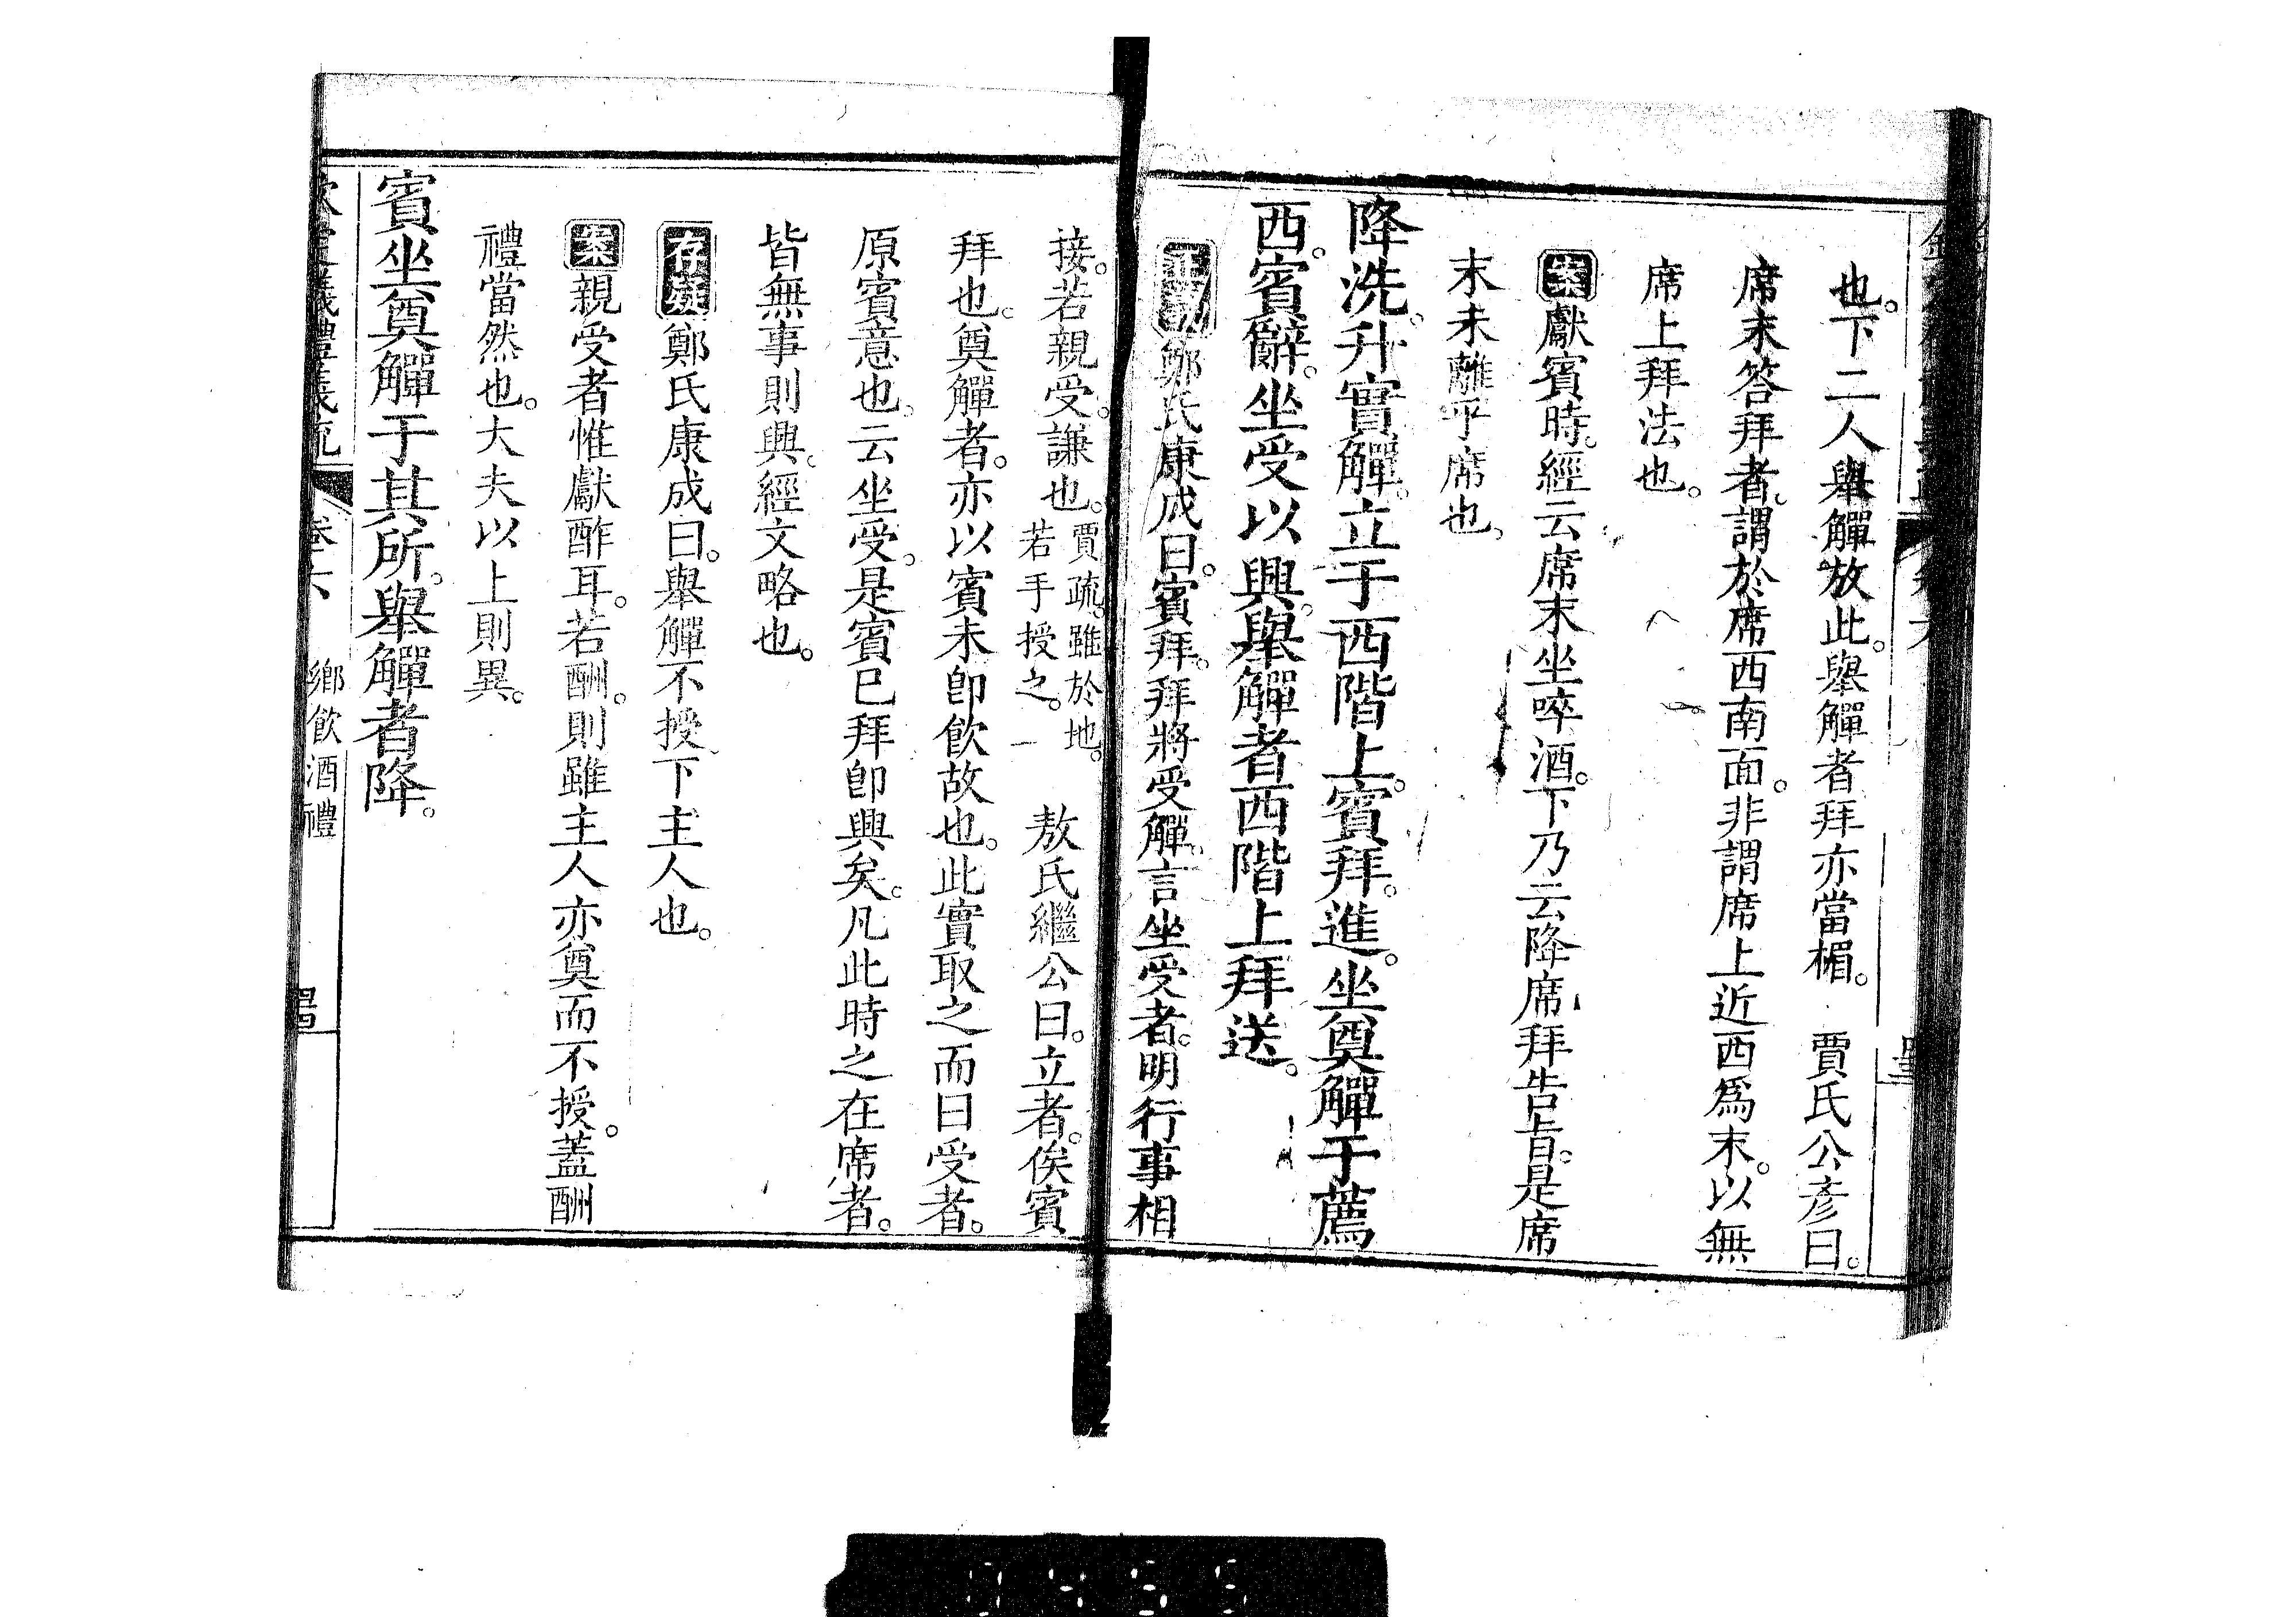 也。下二人舉觶放此。舉觶者拜亦當楣。 賈氏公彥曰。
席末答拜者。謂於席西南面。非謂席上近西爲末。以無
席上拜法也。
案獻賓時。經云席末坐啐酒。下乃云降席拜告旨。是席
末未離乎席也。
降洗。升實觶。立于西階上。賓拜。進。坐奠觶于薦
西。賓辭。坐受以興。舉觶者西階上拜送。
正義鄭氏康成曰。賓拜。拜將受觶。言坐受者。明行事相
接。若親受。謙也。賈疏。雖於地。若手授之。 敖氏繼公曰。立者。俟賓
拜也。奠觶者。亦以賓未卽飮故也。此實取之而曰受者。
原賓意也。云坐受。是賓已拜卽興矣。凡此時之在席者。
皆無事則興。經文略也。
存疑鄭氏康成曰。舉觶不授。下主人也。
案親受者惟獻酢耳。若酬。則雖主人亦奠而不授。蓋酬
禮當然也。大夫以上則異。
賓坐奠觶于其所。舉觶者降。
欽定儀禮義疏 卷六 鄉飮酒禮